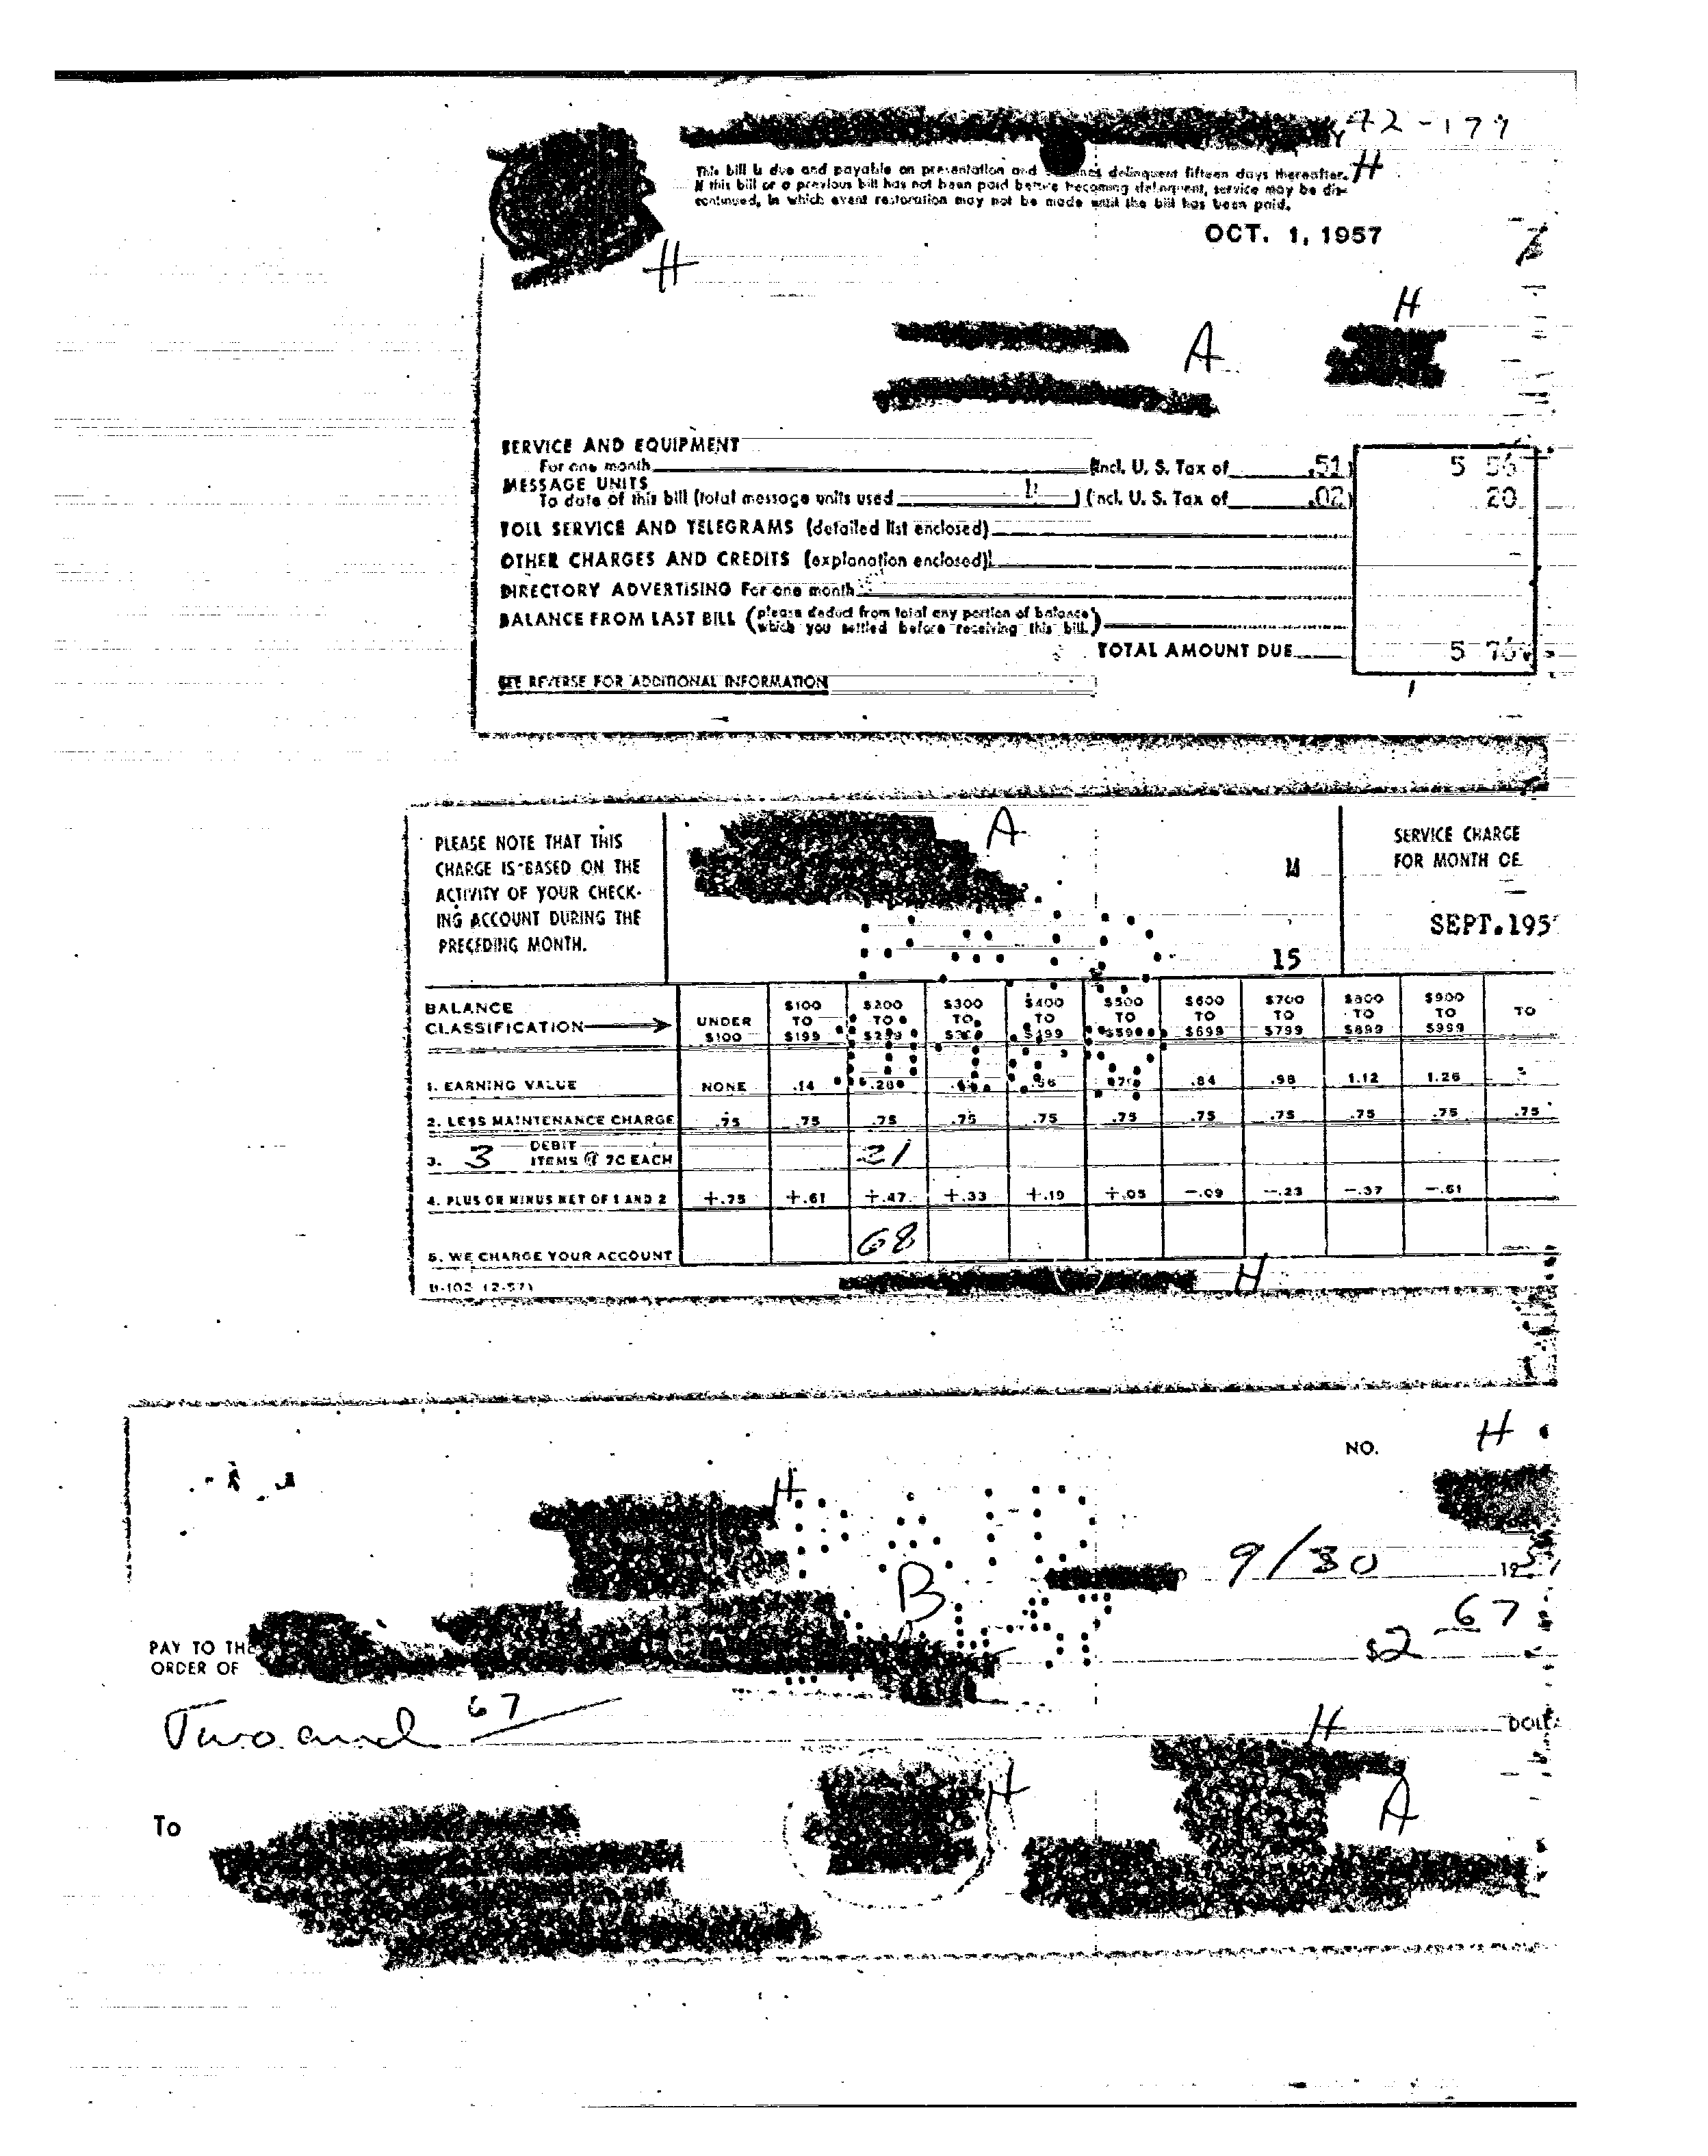 42-177
This bill is due and payable on presentation and delinquent fifteen days thereafter. H
If this bill or a previous bill has not been paid before becoming delinquent, service may be dis-
continued, in which event restoration may not be made until the bill has been paid.
OCT. 1, 1957
H
H
A
SERVICE AND EQUIPMENT
For one month (Incl. U. S. Tax of .51) 5 56
MESSAGE UNITS
To date of this bill (total message units used ) (Incl. U. S. Tax of .02) 20
TOLL SERVICE AND TELEGRAMS (detailed list enclosed)
OTHER CHARGES AND CREDITS (explanation enclosed)
DIRECTORY ADVERTISING For one month
BALANCE FROM LAST BILL (please deduct from total any portion of balance
which you settled before receiving this bill.)
TOTAL AMOUNT DUE 5 76
SEE REVERSE FOR ADDITIONAL INFORMATION
PLEASE NOTE THAT THIS
CHARGE IS BASED ON THE
ACTIVITY OF YOUR CHECK-
ING ACCOUNT DURING THE
PRECEDING MONTH.
A
M
15
SERVICE CHARGE
FOR MONTH OF
SEPT.195
BALANCE CLASSIFICATION UNDER $100 $100 TO $199 $200 TO $299 $300 TO $400 TO $499 $500 TO $599 $600 TO $699 $700 TO $799 $800 TO $899 $900 TO $999 TO
1. EARNING VALUE NONE .14 .28 .84 .98 1.12 1.26
2. LESS MAINTENANCE CHARGE .75 .75 .75 .75 .75 .75 .75 .75 .75 .75 .75
3. 3 DEBIT ITEMS @ 7C EACH 21
4. PLUS OR MINUS NET OF 1 AND 2 +.75 +.61 +.47 +.33 +.19 +.05 -.09 -.23 -.37 -.51
5. WE CHARGE YOUR ACCOUNT 68
D-102 (2-57)
H
NO. H
H
B
9/30 19
PAY TO THE
ORDER OF
$2 67
Two and 67
H
DOLLA
To
H
A